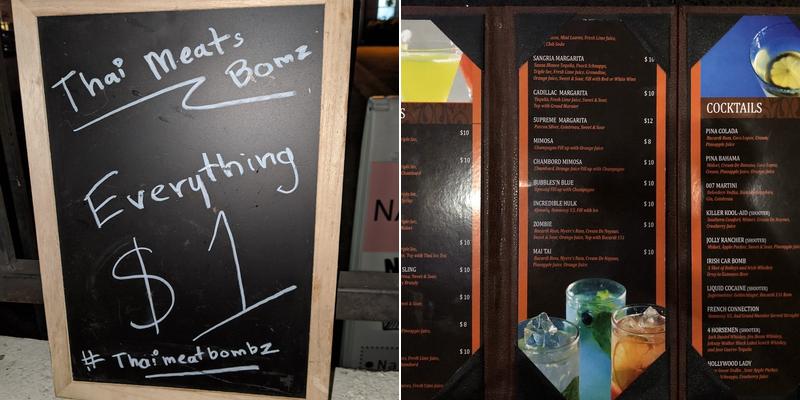 Thai Meats
Bomz
Everything
$1
# Thaimeatbombz
NA
$10
$10
$10
$10
$8
$10
SLING
Mint Leaves, Fresh Lime Juice,
Club Soda
SANGRIA MARGARITA
$ 10
Sauza Blanco Tequila, Peach Schnapps,
Triple Sec, Fresh Lime Juice, Grenadine,
Orange Juice, Sweet & Sour, Fill with Red or White Wine
CADILLAC MARGARITA
$ 10
Tequila, Fresh Lime Juice, Sweet & Sour,
Top with Grand Marnier
SUPREME MARGARITA
$12
Patron Silver, Cointreau, Sweet & Sour
MIMOSA
$ 8
Champagne Fill up with Orange Juice
CHAMBORD MIMOSA
$ 10
Chambord, Orange Juice Fill up with Champagne
BUBBLES'N BLUE
$ 10
Hpnotiq Fill up with Champagne
INCREDIBLE HULK
$ 10
Hpnotiq, Hennessy V.S. Fill with Ice
ZOMBIE
$ 10
Bacardi Rum, Myers's Rum, Creme De Noyaux,
Sweet & Sour, Orange Juice, Top with Bacardi 151
MAI TAI
$ 10
Bacardi Rum, Myers's Rum, Creme De Noyaux,
Pineapple Juice, Orange Juice
COCKTAILS
PINA COLADA
Bacardi Rum, Coco Lopez, Cream,
Pineapple Juice
PINA BAHAMA
Midori, Cream De Banana, Coco Lopez,
Cream, Pineapple Juice, Orange Juice
007 MARTINI
Gin, Cointreau
KILLER KOOL-AID (SHOOTER)
Southern Comfort, Midori, Creme De Noyaux,
Cranberry Juice
JOLLY RANCHER (SHOOTER)
Midori, Apple Pucker, Sweet & Sour, Cranberry Juice
IRISH CAR BOMB
A Shot of Baileys and Irish Whiskey
Drop in Guinness Beer
LIQUID COCAINE (SHOOTER)
Jagermeister, Goldschlager, Bacardi 151 Rum
FRENCH CONNECTION
Hennessy V.S. And Grand Marnier Served Straight
4 HORSEMEN (SHOOTER)
Jack Daniel Whiskey, Jim Beam Whiskey,
Johnny Walker Black Label Scotch Whiskey,
and Jose Cuervo Tequila
HOLLYWOOD LADY
Vodka, Sour Apple Pucker,
Schnapps, Cranberry Juice